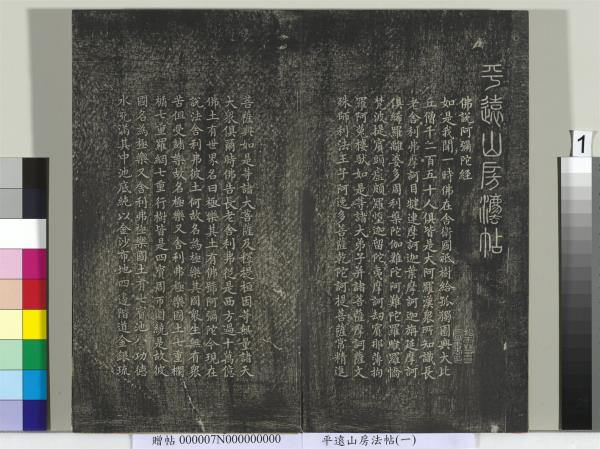 平遠山房法帖
佛說阿彌陀經
如是我聞一時佛在舍衛國祇樹給孤獨園與大比
丘僧千二百五十人俱皆是大阿羅漢衆所知識長
老舍利弗摩訶目犍連摩訶迦葉摩訶迦旃延摩訶
俱絺羅離婆多周利槃陀伽難陀阿難陀羅睺羅憍
梵波提賓頭盧頗羅墮迦留陀夷摩訶劫賓那薄拘
羅阿㝹樓馱如是等諸大弟子并諸菩薩摩訶薩文
殊師利法王子阿逸多菩薩乾陀訶提菩薩常精進
菩薩與如是等諸大菩薩及釋提桓因等無量諸天
大衆俱爾時佛告長老舍利弗從是西方過十萬億
佛土有世界名曰極樂其土有佛號阿彌陀今現在
說法舍利弗彼土何故名為極樂其國衆生無有衆
苦但受諸樂故名極樂又舍利弗極樂國土七重欄
楯七重羅網七重行樹皆是四寶周帀圍繞是故彼
國名為極樂又舍利弗極樂國土有七寶池八功德
水充滿其中池底純以金沙布地四邊階道金銀琉
1
贈帖 000007N000000000 平遠山房法帖(一)